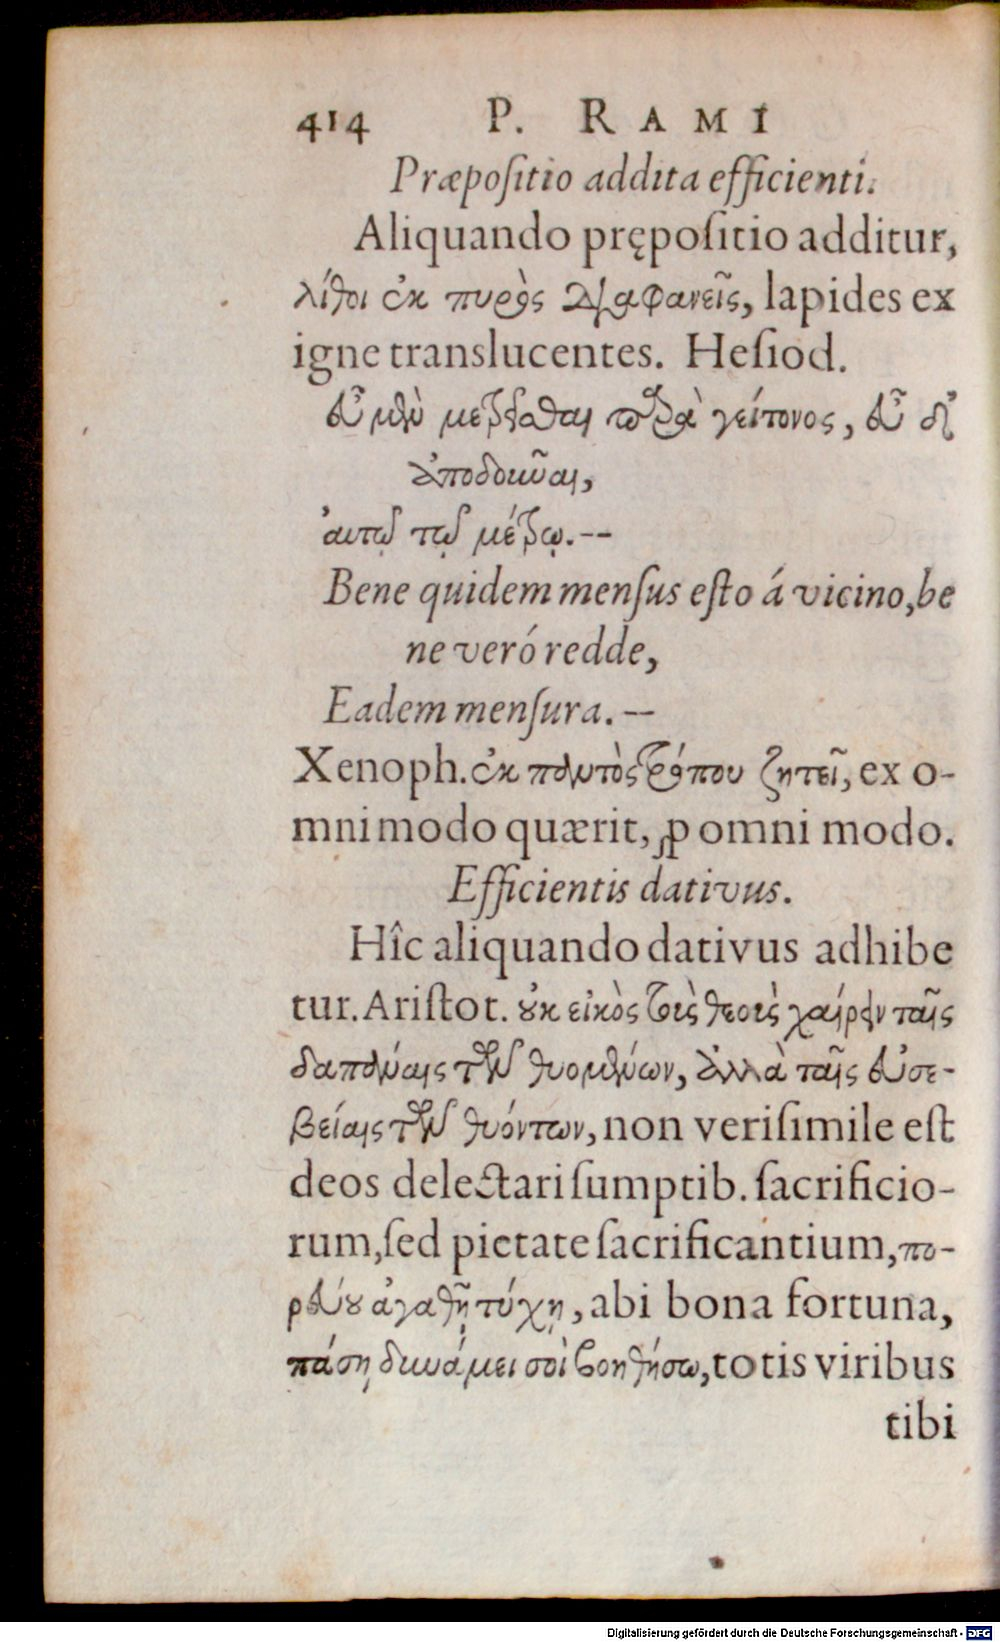 414 P. RAMI
Præpoſitio addita efficienti.
Aliquando prępoſitio additur,
λίθοι ἐκ πυρὸς διαφανεῖς, lapides ex
igne translucentes. Heſiod.
εὖ μὲν μετρεῖσθαι παρὰ γείτονος, εὖ δ᾽
ἀποδοῦναι,
αὐτῷ τῷ μέτρῳ.--
Bene quidem menſus eſto á vicino, be
ne veró redde,
Eadem menſura. --
Xenoph. ἐκ παντὸς τρόπου ζητεῖ, ex o-
mni modo quærit, ꝓ omni modo.
Efficientis dativus.
Hîc aliquando dativus adhibe
tur. Ariſtot. οὐκ εἰκὸς τοὺς θεοὺς χαίρειν ταῖς
δαπάναις τῶν θυομένων, ἀλλὰ ταῖς εὐσε-
βείαις τῶν θυόντων, non veriſimile eſt
deos delectari ſumptib. ſacrificio-
rum, ſed pietate ſacrificantium, πο-
ρεύου ἀγαθῇ τύχῃ, abi bona fortuna,
πάσῃ δυνάμει σοὶ βοηθήσω, totis viribus
tibi
Digitalisierung gefördert durch die Deutsche Forschungsgemeinschaft - DFG